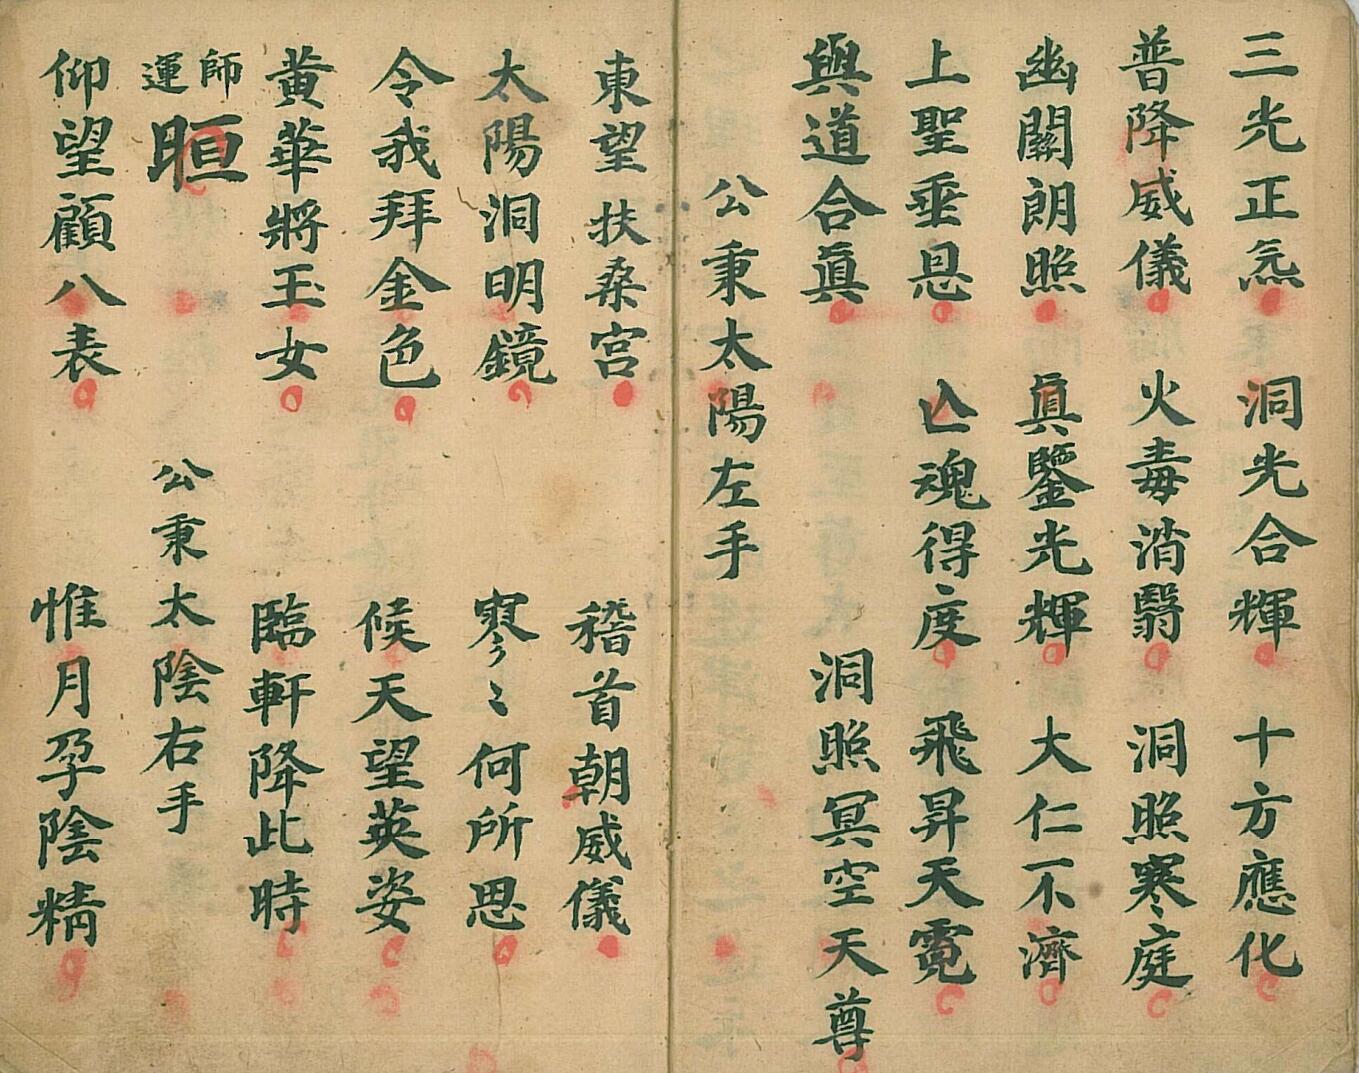 三光正炁 洞光合輝 十方應化
普降威儀 火毒消翳 洞照寒庭
幽關朗照 真鑒光輝 大仁不濟
上聖垂恩 亾魂得度 飛昇天霓
與道合眞 洞照冥空天尊
公秉太陽左手
東望扶桑宮 稽首朝威儀
太陽洞明鏡 寥〻何所思
令我拜金色 候天望英姿
黄華將玉女 臨軒降此時
師運 晅 公秉太陰右手
仰望顧八表 惟月孕陰精